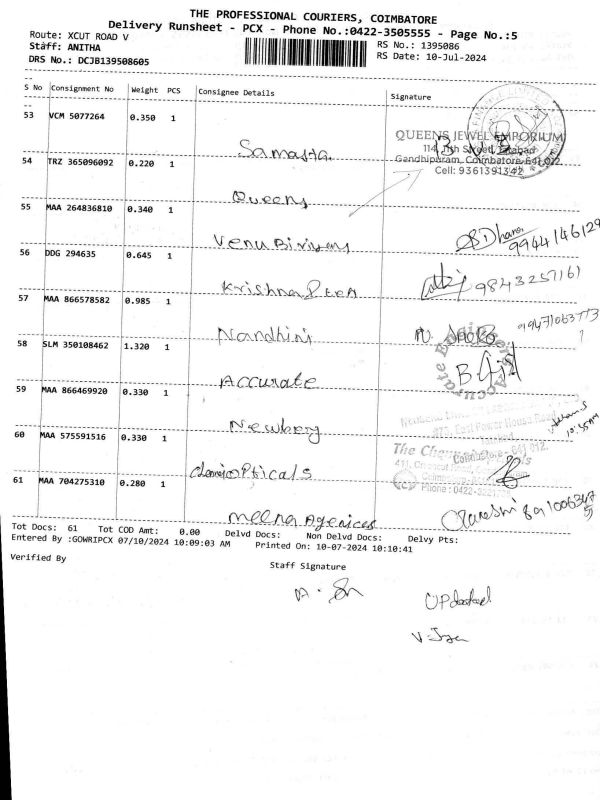 THE PROFESSIONAL COURIERS, COIMBATORE
Delivery Runsheet - PCX - Phone No.:0422-3505555 - Page No.:5
Route: XCUT ROAD V
RS No.: 1395086
Staff: ANITHA
RS Date: 10-Jul-2024
DRS No.: DCJB139508605
S No Consignment No Weight PCS Consignee Details Signature
53 VCM 5077264 0.350 1
Samasta
QUEENS JEWEL EMPORIUM
114, Street, Tatabad
Gandhipuram, Coimbatore-641 012
Cell: 9361391342
54 TRZ 365096092 0.220 1
Queens
55 MAA 264836810 0.340 1
Venu Biriyani
Dhana
56 DDG 294635 0.645 1
Krishna
9843257161
57 MAA 866578582 0.985 1
Nandhini
58 SLM 350108462 1.320 1
Accurate
59 MAA 866469920 0.330 1
60 MAA 575591516 0.330 1
Opticals
The
Phone: 0422-
61 MAA 704275310 0.280 1
Meena Agencies
Tot Docs: 61 Tot COD Amt: 0.00 Delvd Docs: Non Delvd Docs: Delvy Pts:
Entered By :GOWRIPCX 07/10/2024 10:09:03 AM Printed On: 10-07-2024 10:10:41
Verified By
Staff Signature
Updated